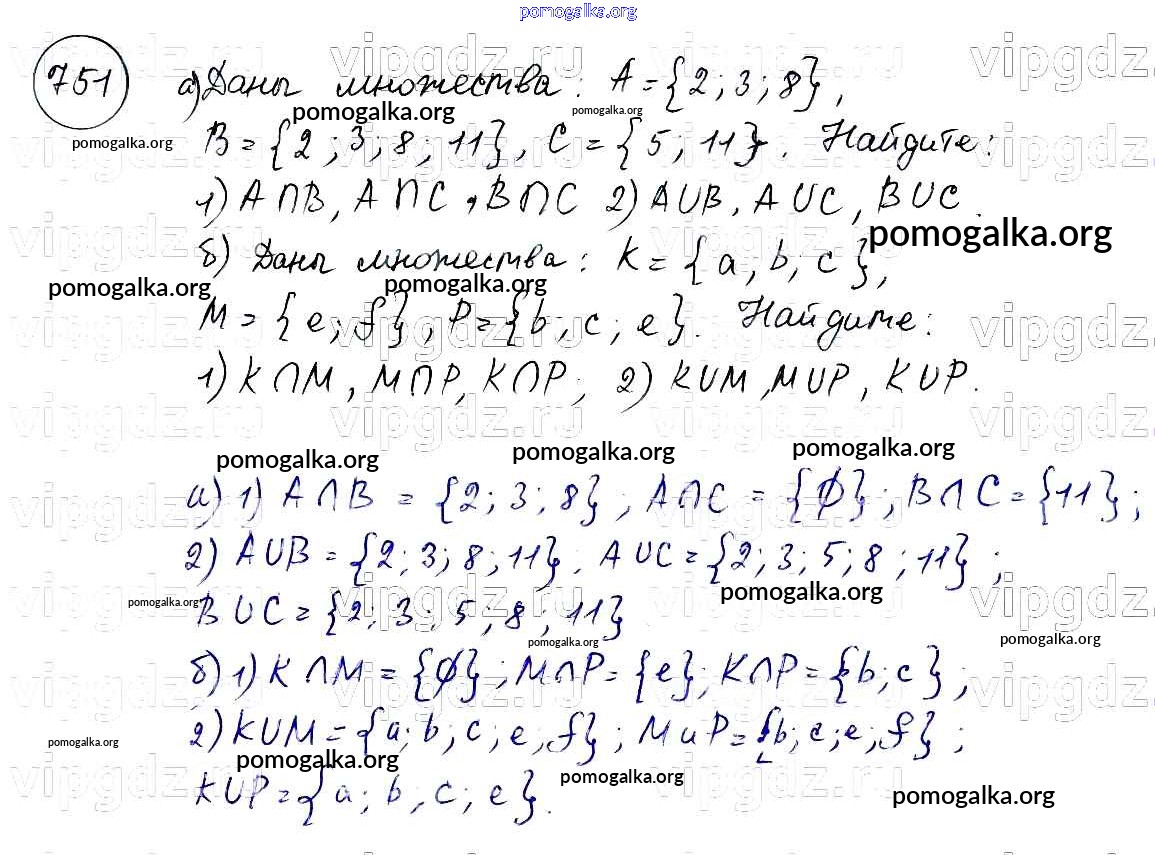 pomogalka.org
751
а) Даны множества: A = {2; 3; 8},
B = {2; 3; 8; 11}, C = {5; 11}. Найдите:
1) A∩B, A∩C, B∩C 2) A∪B, A∪C, B∪C.
б) Даны множества: K = {a, b; c},
M = {e; f}, P = {b; c; e}. Найдите:
1) K∩M, M∩P, K∩P; 2) K∪M, M∪P, K∪P.
а) 1) A∩B = {2; 3; 8}; A∩C = {∅}; B∩C = {11};
2) A∪B = {2; 3; 8; 11}; A∪C = {2; 3; 5; 8; 11};
B∪C = {2; 3; 5; 8; 11}
б) 1) K∩M = {∅}; M∩P = {e}; K∩P = {b; c};
2) K∪M = {a; b; c; e; f}; M∪P = {b; c; e; f};
K∪P = {a; b; c; e}.